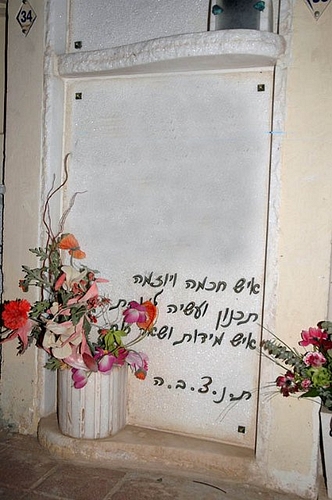 34
איש חכמה ויוזמה
תכנון ועשיה
איש מידות ושאר
ת.נ.צ.ב.ה